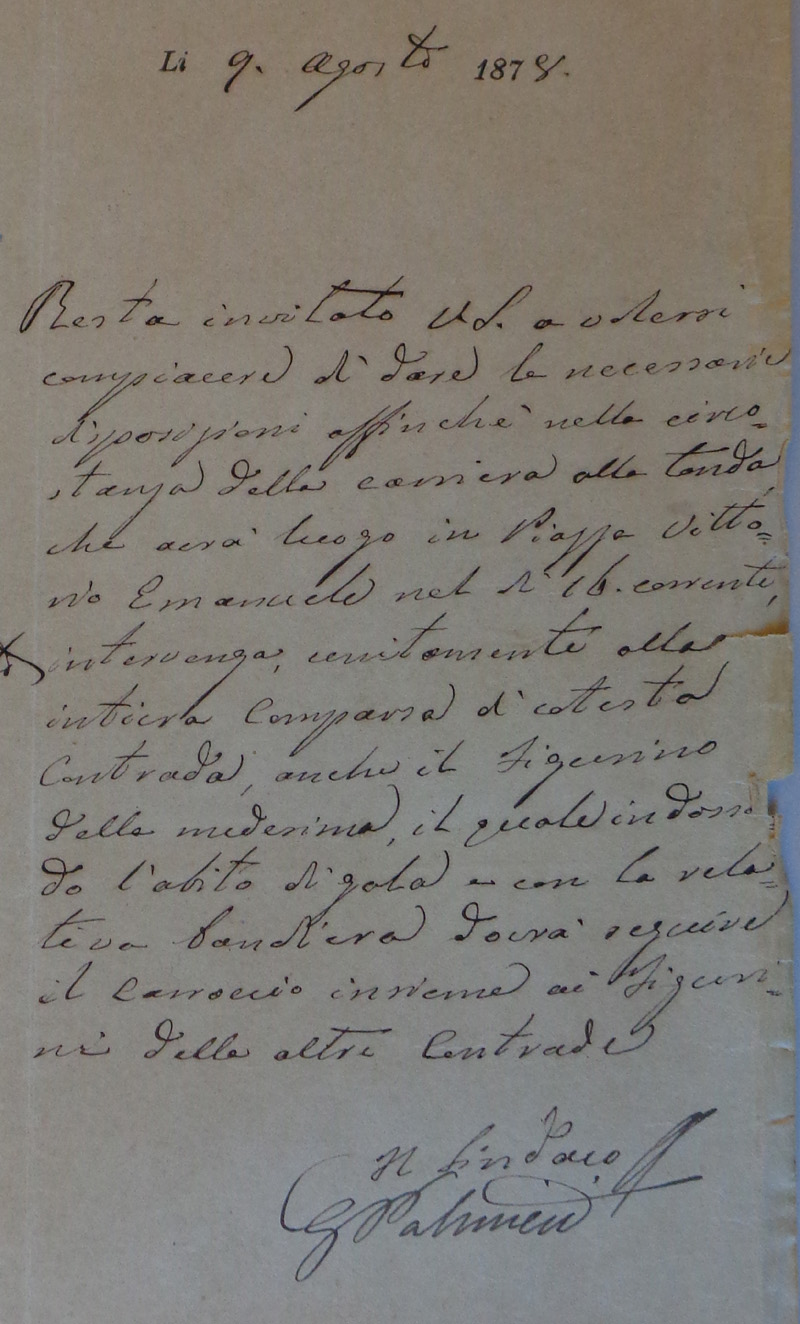 Li 9. Agosto 1878.
Resta invitato VS. a volersi
compiacere di dare le necessarie
disposizioni affinchè nella circo=
stanza della carriera alla tonda,
che avrà luogo in Piazza Vitto=
rio Emanuele nel dì 16. corrente,
intervenga, unitamente alla
intiera Comparsa di cotesta
Contrada, anche il Figurino
della medesima, il quale indossan=
do l'abito di gala e con la rela=
tiva bandiera dovrà seguire
il Carroccio insieme ai Figuri=
ni delle altre Contrade
Il Sindaco